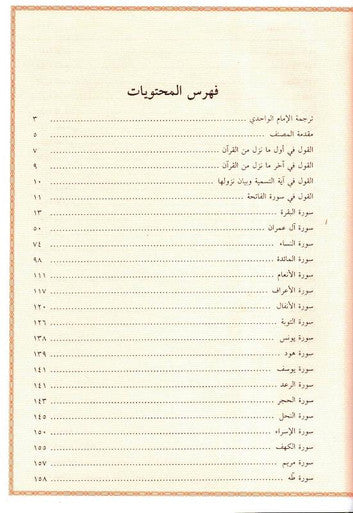 فهرس المحتويات
ترجمة الإمام الواحدي ٣
مقدمة المصنف ٥
القول في أول ما نزل من القرآن ٧
القول في آخر ما نزل من القرآن ٩
القول في آية التسمية وبيان نزولها ١٠
القول في سورة الفاتحة ١١
سورة البقرة ١٣
سورة آل عمران ٥٠
سورة النساء ٧٤
سورة المائدة ٩٨
سورة الأنعام ١١١
سورة الأعراف ١١٧
سورة الأنفال ١٢٠
سورة التوبة ١٢٦
سورة يونس ١٣٨
سورة هود ١٣٩
سورة يوسف ١٤١
سورة الرعد ١٤١
سورة الحجر ١٤٣
سورة النحل ١٤٥
سورة الإسراء ١٥٠
سورة الكهف ١٥٥
سورة مريم ١٥٧
سورة طه ١٥٨